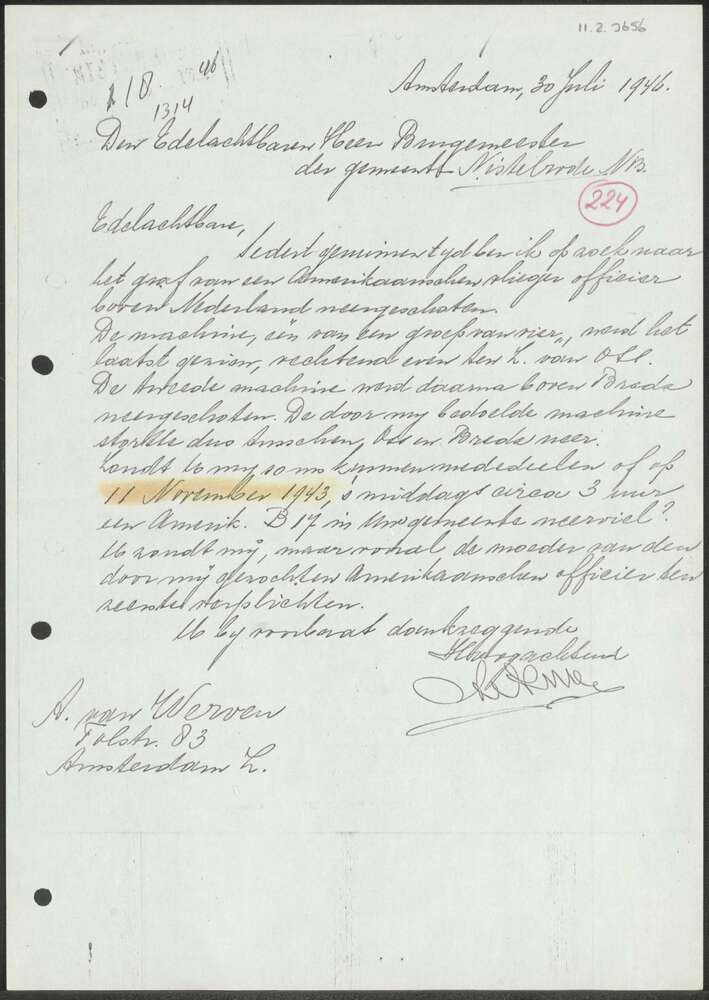 11.2.3656
2/8 46
1314
Amsterdam, 30 Juli 1946.
Den Edelachtbaren Heer Burgemeester
der gemeente Nistelrode N.B.
224
Edelachtbare,
Sedert geruimen tyd ben ik op zoek naar
het graf van een Amerikaanschen vlieger officier
boven Nederland neergeschoten.
De machine, één van een groep van vier, werd het
laatst gezien, vechtend even ten Z. van Oss.
De tweede machine werd daarna boven Breda
neergeschoten. De door my bedoelde machine
stortte dus tusschen Oss en Breda neer.
Zoudt U my soms kunnen mededeelen of op
11 November 1943, 's middags circa 3 uur
een Amerik. B 17 in Uw gemeente neerviel?
U zoudt mij, maar vooral de moeder van den
door mij gezochten Amerikaanschen officier ten
zeerste verplichten.
U by voorbaat dankzeggende
Hoogachtend
A. van Werven
Tolstr. 83
Amsterdam Z.